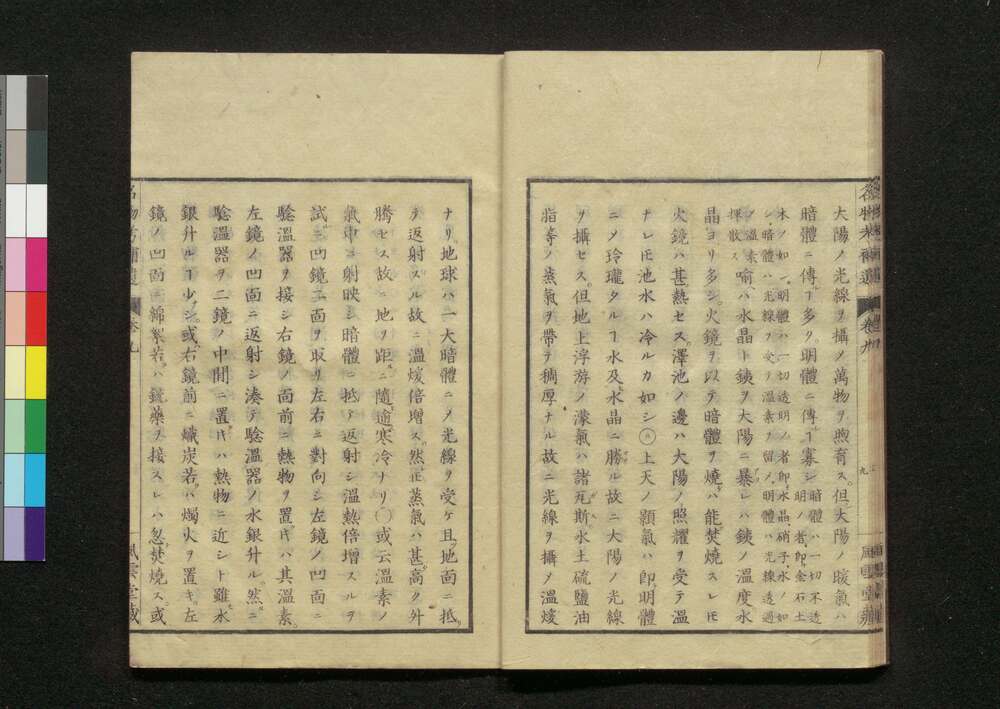 大陽ノ光線ヲ攝ノ萬物ヲ煦育ス。但大陽ノ暖氣ハ
暗體ニ傳ヿ多ク。明體ニ傳ヿ寡シ
暗體ハ一切不透
明ノ者。即金石土
木ノ如シ。明體ハ一切透明ノ者即水晶、硝子、水ノ如
シ、暗體ハ光線ヲ受テ溫素ヲ留メ、明體ハ光線透過
ノ溫素
揮散ス
喻ハ水晶ト鐵ヲ大陽ニ暴レハ鐵ノ溫度水
晶ヨリ多シ。火鏡ヲ以テ暗體ヲ燒ハ能焚燒スレㄷ
火鏡ハ甚熱セス。澤池ノ邊ハ大陽ノ照耀ヲ受テ溫
ナレㄷ池水ハ冷ルカ如シ○上天ノ顥氣ハ即明體
ニノ玲瓏タルヿ水及水晶ニ勝ル故ニ大陽ノ光線
ヲ攝セス。但地上浮游ノ濛氣ハ諸瓦斯水土硫鹽油
脂等ノ蒸氣ヲ帶テ稠厚ナル故ニ光線ヲ攝ノ溫煖
ナリ地球ハ一大暗體ニノ光線ヲ受ケ且地面ニ抵
テ返射スル故ニ溫煖倍增ス。然㆑蒸氣ハ甚高ク外
騰セス故ニ地ヲ距ニ隨逾寒冷ナリ○或云溫素ノ
氣中ニ射映シ暗體ニ抵テ返射シ溫熱倍增スルヲ
試ニ凹鏡二面ヲ取リ左右ニ對向シ左鏡ノ凹面ニ
騐溫器ヲ接シ右鏡ノ面前ニ熱物ヲ置ㄑハ其溫素。
左鏡ノ凹面ニ返射シ湊テ騐溫器ノ水銀升ル。然ニ
騐溫器ヲ二鏡ノ中間ニ置ㄑハ熱物ニ近シト雖水
銀升ルヿ少シ。或右鏡前ニ熾炭若ハ燭火ヲ置キ。左
鏡ノ凹面ニ綿絮若ハ銃藥ヲ接スレハ忽焚燒ス或